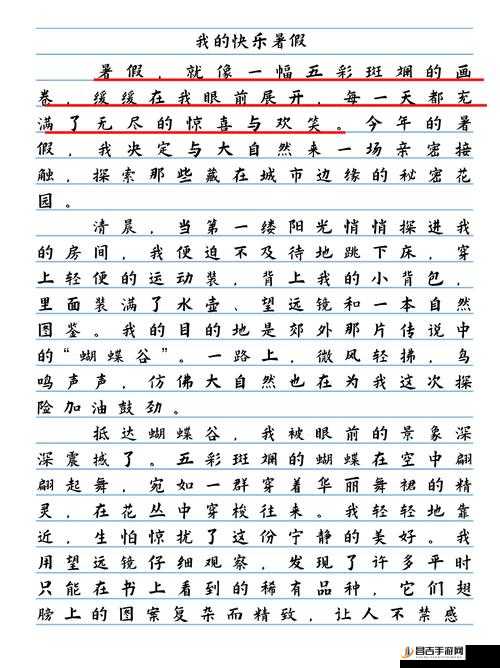 我的快乐暑假
暑假，就像一幅五彩斑斓的画
卷，缓缓在我眼前展开，每一天都充
满了无尽的惊喜与欢笑。今年的暑
假，我决定与大自然来一场亲密接
触，探索那些藏在城市边缘的秘密花
园。
清晨，当第一缕阳光悄悄探进我
的房间，我便迫不及待地跳下床，穿
上轻便的运动装，背上我的小背包，
里面装满了水壶、望远镜和一本自然
图鉴。我的目的地是郊外那片传说中
的“蝴蝶谷”。一路上，微风轻拂，鸟
鸣声声，仿佛大自然也在为我这次探
险加油鼓劲。
抵达蝴蝶谷，我被眼前的景象深
深震撼了。五彩斑斓的蝴蝶在空中翩
翩起舞，宛如一群穿着华丽舞裙的精
灵，在花丛中穿梭往来。我轻轻地靠
近，生怕惊扰了这份宁静的美好。我
用望远镜仔细观察，发现了许多平时
只能在书上看到的稀有品种，它们翅
膀上的图案复杂而精致，让人不禁感
昌吉手游网